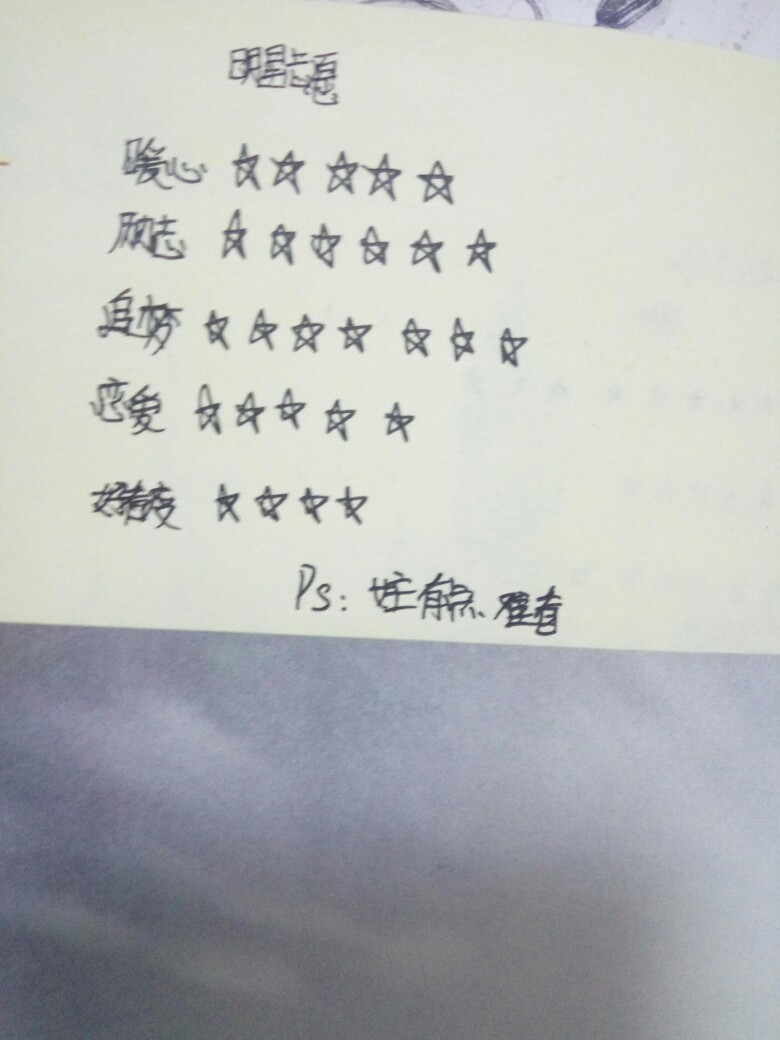 明星志愿
暖心 ☆☆☆☆☆
励志 ☆☆☆☆☆☆
追梦 ☆☆☆☆☆☆☆
恋爱 ☆☆☆☆☆
好看度 ☆☆☆☆
Ps: 女主有点难看